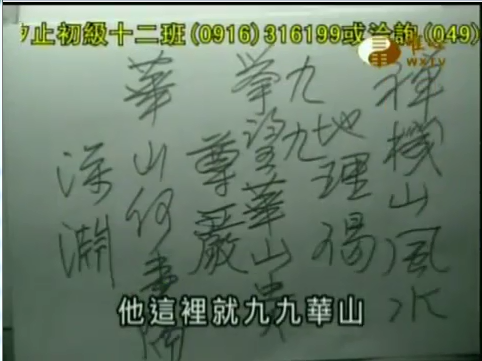 止初級十二班(0916)316199或洽詢(049)
唯心
WXTV
禪機山風水
九九地理揚
望華山
尊嚴
華山何
深淵
他這裡就九九華山